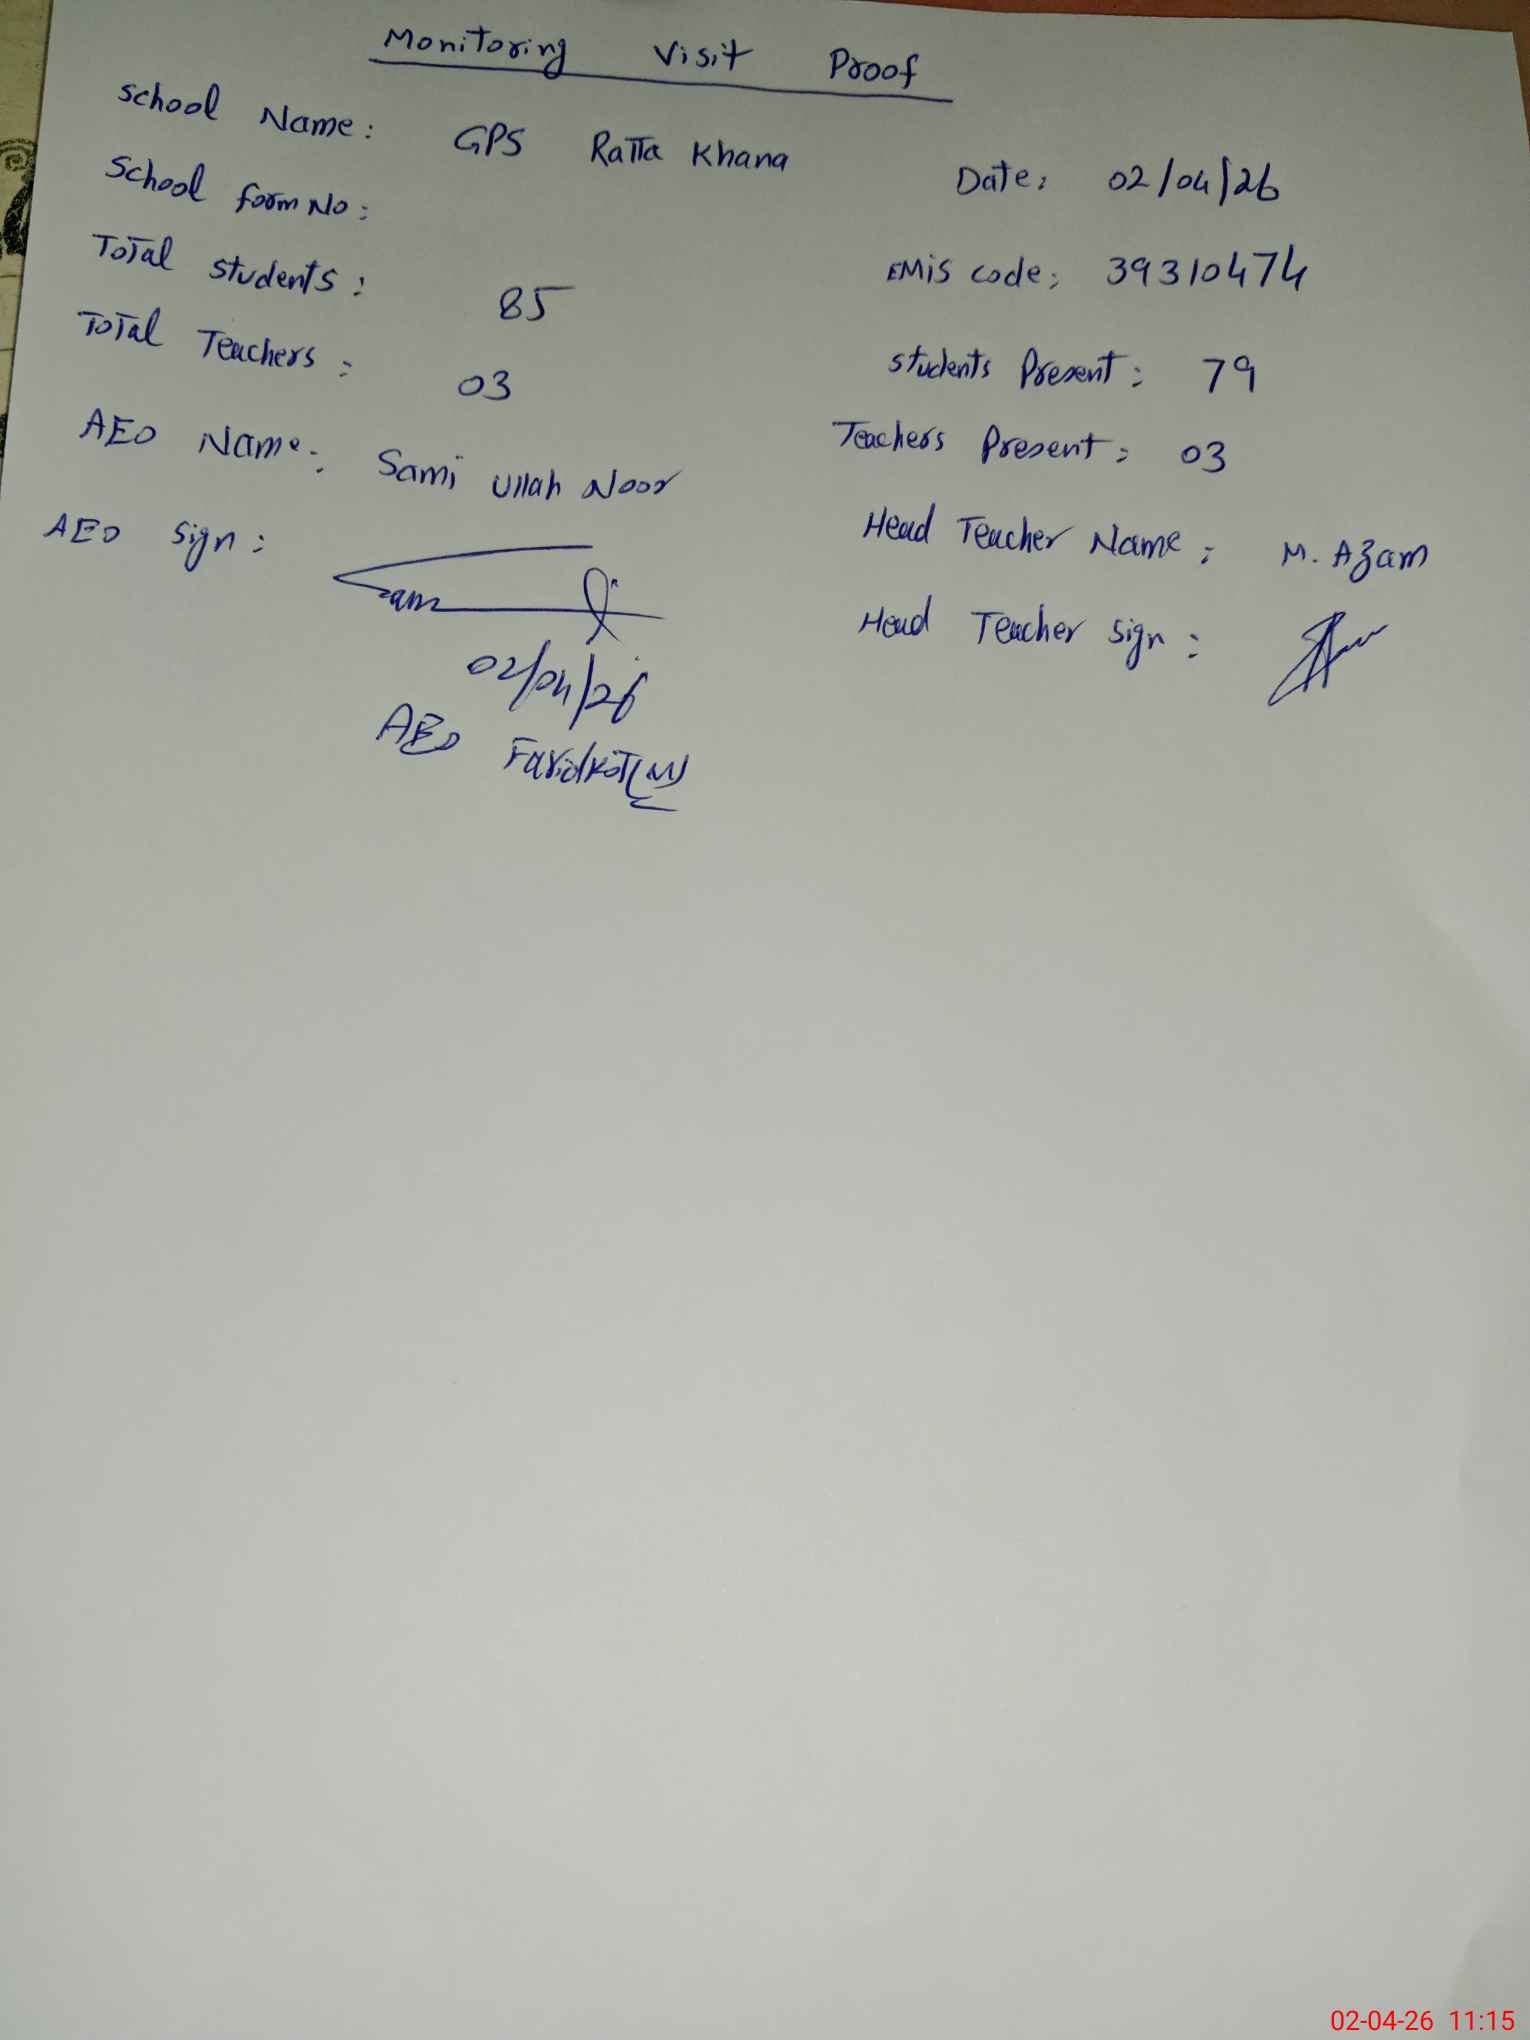 Monitoring Visit Proof
School Name: GPS Ratta Khana
Date: 02/04/26
School form No:
EMIS code: 39310474
Total students: 85
Students Present: 79
Total Teachers: 03
Teachers Present: 03
AEO Name: Sami Ullah Noor
Head Teacher Name: M. Azam
AEO Sign:
Head Teacher Sign:
02/04/26
AEO Faridkot (M)
02-04-26 11:15